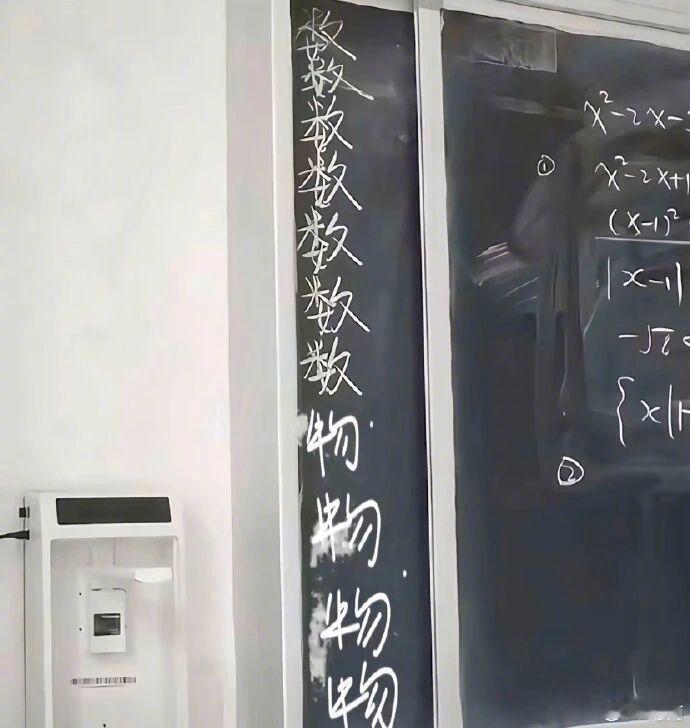 数
数
数
数
数
数
数
物
物
物
物
x²-2x-
① x²-2x+1
(x-1)²
|x-1|
{x|1-
②